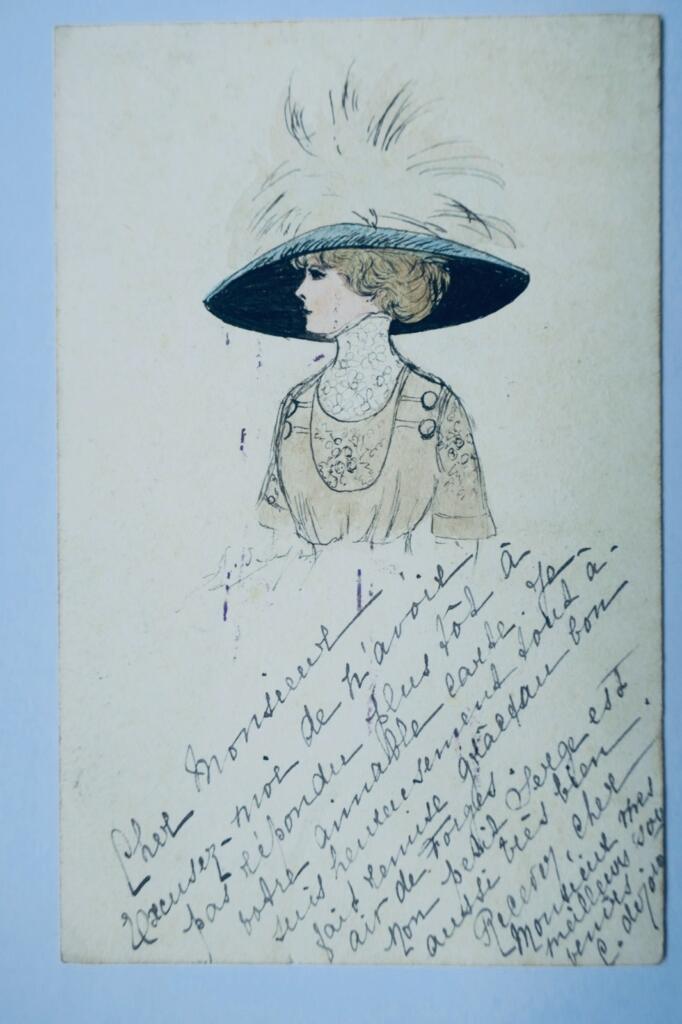 Cher Monsieur,
Excusez-moi de n'avoir
pas répondu plus tôt à
votre aimable carte. Je
suis heureusement tout à-
fait remise grâce au bon
air de Forges.
Mon petit Serge est
aussi très bien.
Recevez, cher
Monsieur mes
meilleurs sou
venirs.